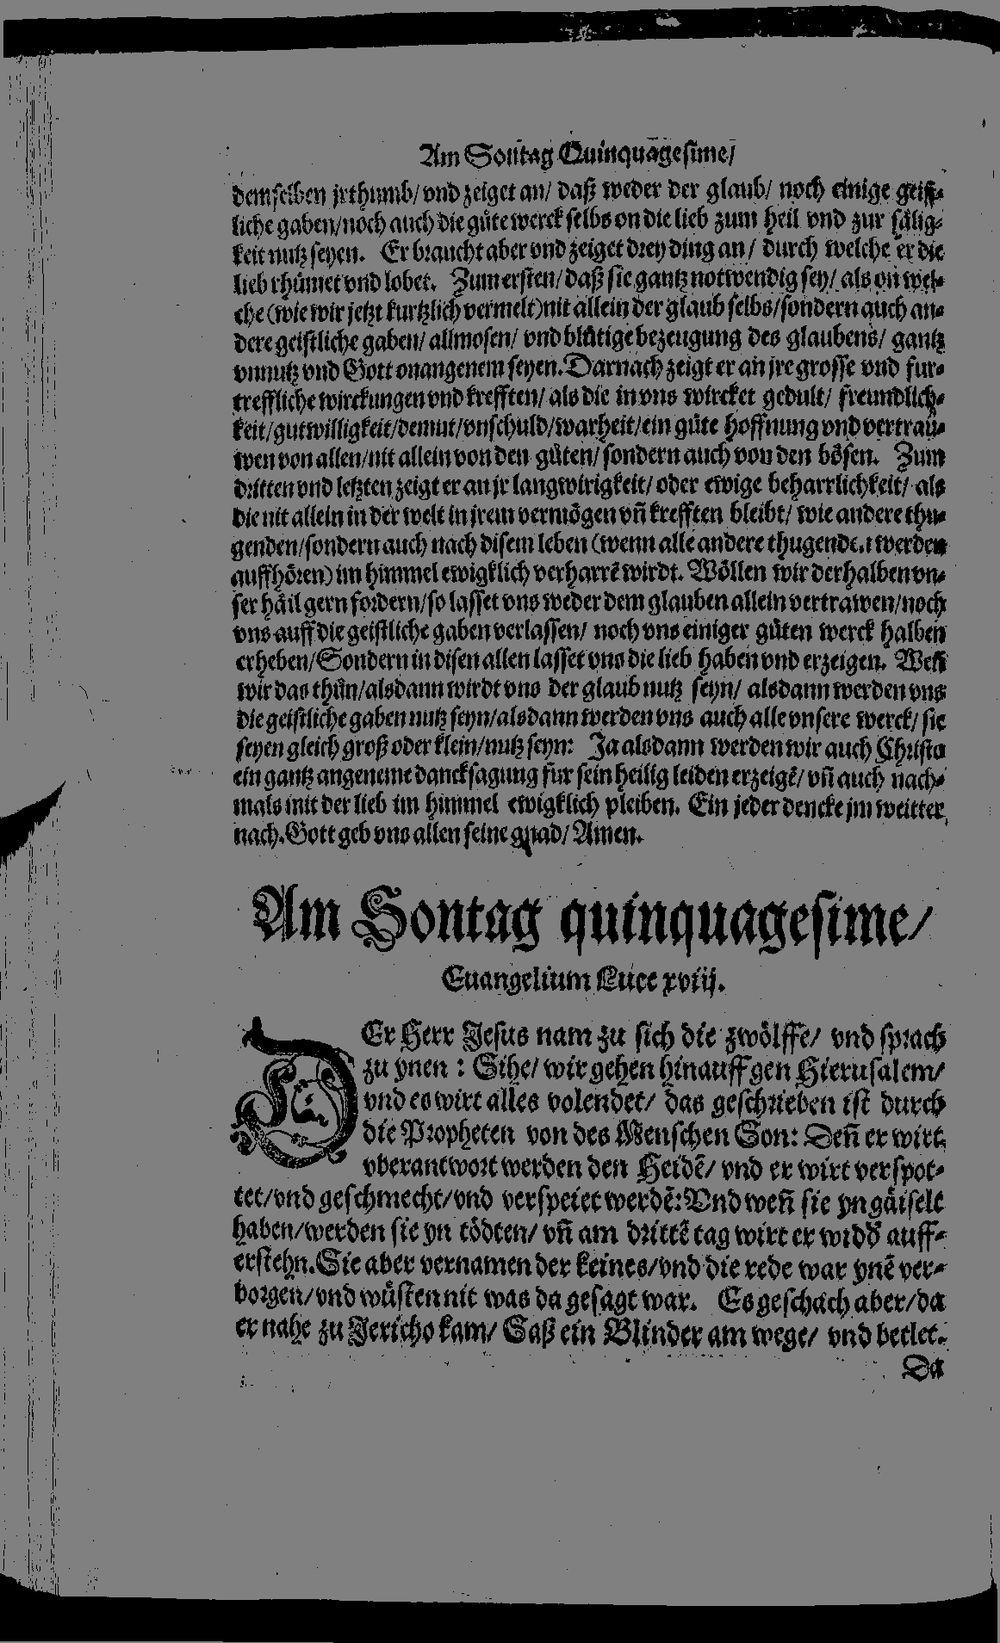 Am Sontag Quinquagesime/
demselben jrthumb/ vnd zeiget an/ daß weder der glaub/ noch einige geist-
liche gaben/noch auch die gůte werck selbs on die lieb zum heil vnd zur sälig-
keit nutz seyen. Er braucht aber vnd zeiget drey ding an/ durch welche er die
lieb rhümet vnd lobet. Zum ersten/ daß sie gantz notwendig sey/ als on wel-
che (wie wir jetzt kurtzlich vermelt) nit allein der glaub selbs/sondern auch an-
dere geistliche gaben/ allmosen/ vnd blůtige bezeugung des glaubens/ gantz
vnnutz vnd Gott onangenem seyen. Darnach zeigt er an jre grosse vnd fur-
treffliche wirckungen vnd krefften/ als die in vns wircket gedult/ freundlich-
keit/gutwilligkeit/demut/vnschuld/warheit/ein gůte hoffnung vnd vertrau-
wen von allen/nit allein von den gůten/ sondern auch von den bösen. Zum
dritten vnd letzten zeigt er an jr langwirigkeit/ oder ewige beharrlichkeit/ als
die nit allein in der welt in jrem vermögen vñ krefften bleibt/ wie andere thu-
genden/sondern auch nach disem leben (wenn alle andere thugenden werden
auffhören) im himmel ewigklich verharrē wirdt. Wöllen wir derhalben vn-
ser häil gern fordern/so lasset vns weder dem glauben allein vertrawen/noch
vns auff die geistliche gaben verlassen/ noch vns einiger gůten werck halben
erheben/Sondern in disen allen lasset vns die lieb haben vnd erzeigen. Weñ
wir das thůn/alsdann wirdt vns der glaub nutz seyn/ alsdann werden vns
die geistliche gaben nutz seyn/alsdann werden vns auch alle vnsere werck/ sie
seyen gleich groß oder klein/nutz seyn: Ja alsdann werden wir auch Christo
ein gantz angeneme dancksagung für sein heilig leiden erzeigē/ vñ auch nach-
mals mit der lieb im himmel ewigklich pleiben. Ein jeder dencke jm weitter
nach. Gott geb vns allen seine gnad/ Amen.
Am Sontag quinquagesime/
Euangelium Luce xviij.
DEr Herr Jesus nam zu sich die zwölffe/ vnd sprach
zu ynen : Sihe/ wir gehen hinauff gen Hierusalem/
vnd es wirt alles volendet/ das geschrieben ist durch
die Propheten von des Menschen Son: Deñ er wirt
vberantwort werden den Heidē/ vnd er wirt verspot-
tet/vnd geschmecht/vnd verspeiet werdē: Vnd weñ sie yn gäiselt
haben/werden sie yn tödten/ vñ am drittē tag wirt er widd̄ auff-
erstehn. Sie aber vernamen der keines/vnd die rede war ynē ver-
borgen/vnd wüsten nit was da gesagt war. Es geschach aber/da
er nahe zu Jericho kam/ Saß ein Blinder am wege/ vnd betlet.
Da